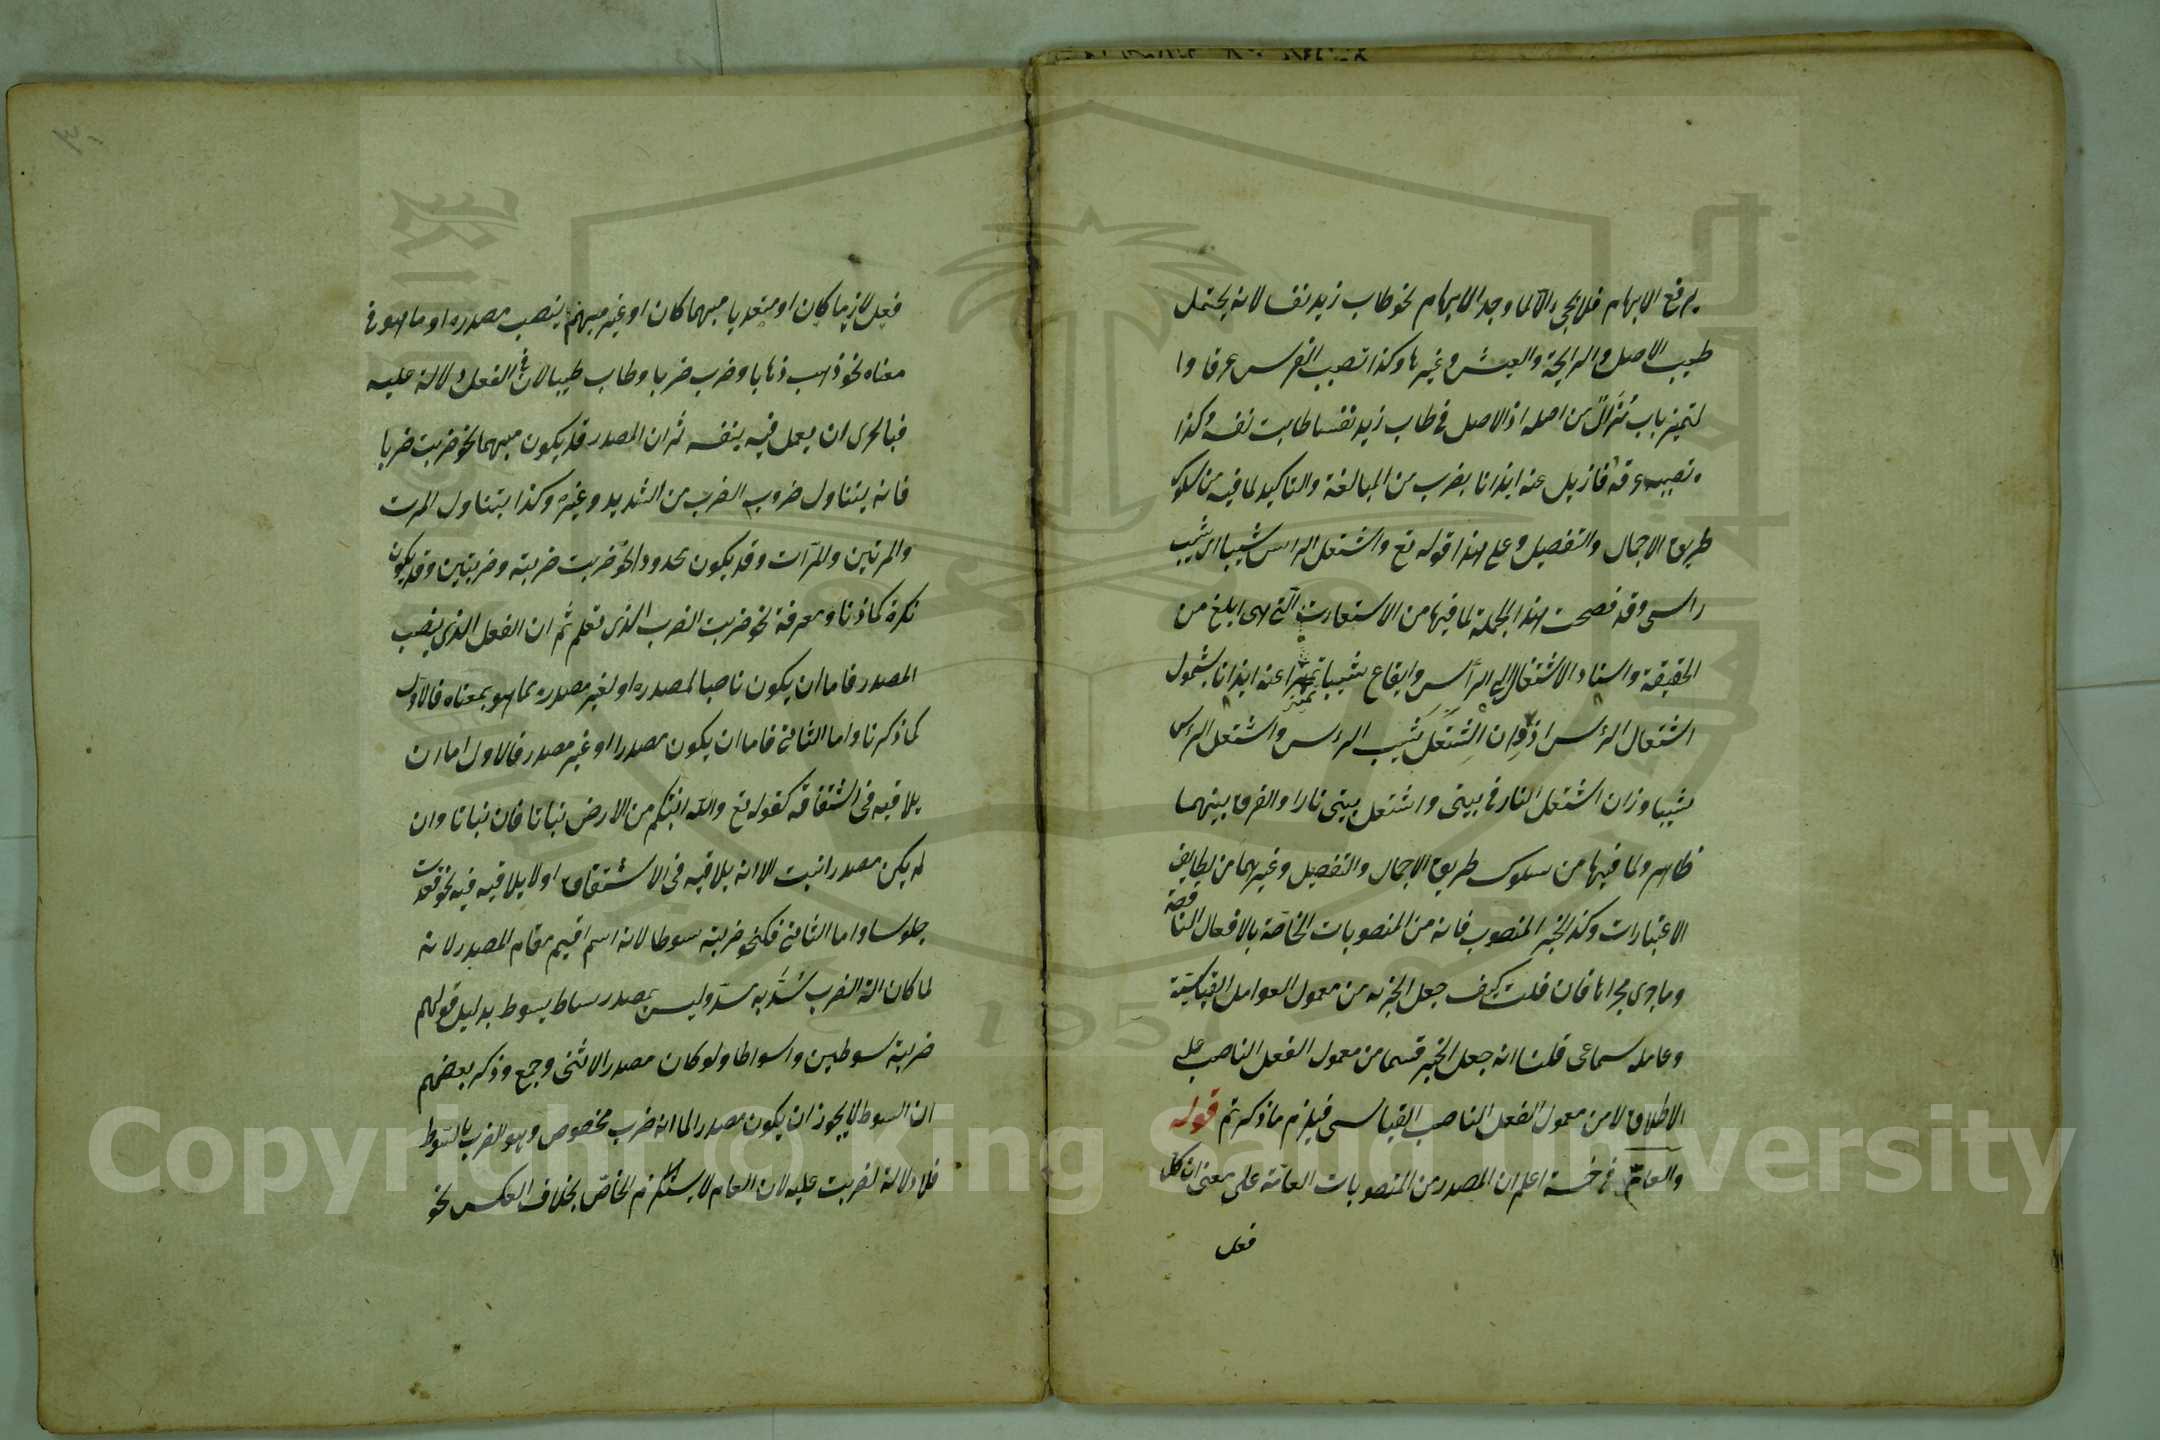 يرفع الابهام فلا يجئ الا لما وجد الابهام نحو طاب زيد نفسا لانه يحتمل
طيب الاصل والرايحة والعيش وغيرها وكذا تصبب الفرس عرقا وا
لتميز باب مُزالٌ من اصله اذ الاصل في طاب زيد نفسا طابت نفسه وكذا
تصبب عرقه فازيل عنه ايذانا بضرب من المبالغة والتاكيد لما فيه من سلوك
طريق الاجمال والتفصيل وعلى هذا قوله تع واشتعل الراس شيبا اي شيب
راسي وقد فصحت هذه الجملة لما فيها من الاستعارت التي هى ابلغ من
الحقيقة واسناد الاشتعال الى الرأس وايقاع شيبا تميزا عنه ايذانا بشمول
اشتعال الرأس اذ وزان اشتعل شيب الرأس واشتعل الرأس
شيبا وزان اشتعل النار في بيتى واشتعل بيتى نارا والفرق بينهما
ظاهر ولما فيها من سلوك طريق الاجمال والتفصيل وغيرهما من لطايف
الاعتبارات وكذا الخبر المنصوب فانه من المنصوبات الخاصّة بالافعال الناقصة
وما جرى مجراها فان قلت كيف جعل الخبر من معمول العوامل القياسيّة
وعامله سماعى قلنا انه جعل الخبر قسما من معمول الفعل الناصب على
الاطلاق لا من معمول الفعل الناصب القياسى فيلزم ما ذكرتم قوله
والعام في خمسة اعلم ان المصدر من المنصوبات العامّة على معنى ان كل
فعل
فعل لازما كان او متعديا مبهما كان او غير مبهم ينصب مصدره او ما هو في
معناه نحو ذهب ذهابا وضرب ضربا وطاب طيبا لان في الفعل دلالة عليه
فبالحرى ان يعمل فيه بنفسه ثم ان المصدر قد يكون مبهما نحو ضربت ضربا
فانه يتناول ضروب الضرب من الشديد وغيره وكذا يتناول المرت
والمرتين والمرّات وقد يكون محدودا نحو ضربت ضربة وضربتين وقد يكون
نكرة كما ذكرنا ومعرفة نحو ضربت الضرب الذى تعلم ثم ان الفعل الذى ينصب
المصدر فاما ان يكون ناصبا لمصدره او لغير مصدره مما هو بمعناه فالاول
كما ذكرنا واما الثانى فاما ان يكون مصدرا او غير مصدر فالاول اما ان
يلاقيه في اشتقاقه كقوله تع والله انبتكم من الارض نباتا فان نباتا وان
لم يكن مصدر انبت الا انه يلاقيه في الاشتقاق او لا يلاقيه فيه نحو قعدت
جلوسا واما الثانى فكنحو ضربته سوطا لانه اسم اقيم مقام المصدر لانه
لما كان الة الضرب سُدّ به مسدّه وليس بمصدر ساط يسوط بدليل قولهم
ضربته سوطين واسواطا ولو كان مصدرا لا ثنى وجمع وذكر بعضهم
ان السوط لا يجوز ان يكون مصدرا لما انه ضرب مخصوص وهو الضرب بالسّوط
فلا دلالة لضربت عليه لان العام لا يستلزم الخاصّ بخلاف العكس نحو
Copyright © King Saud University
1957